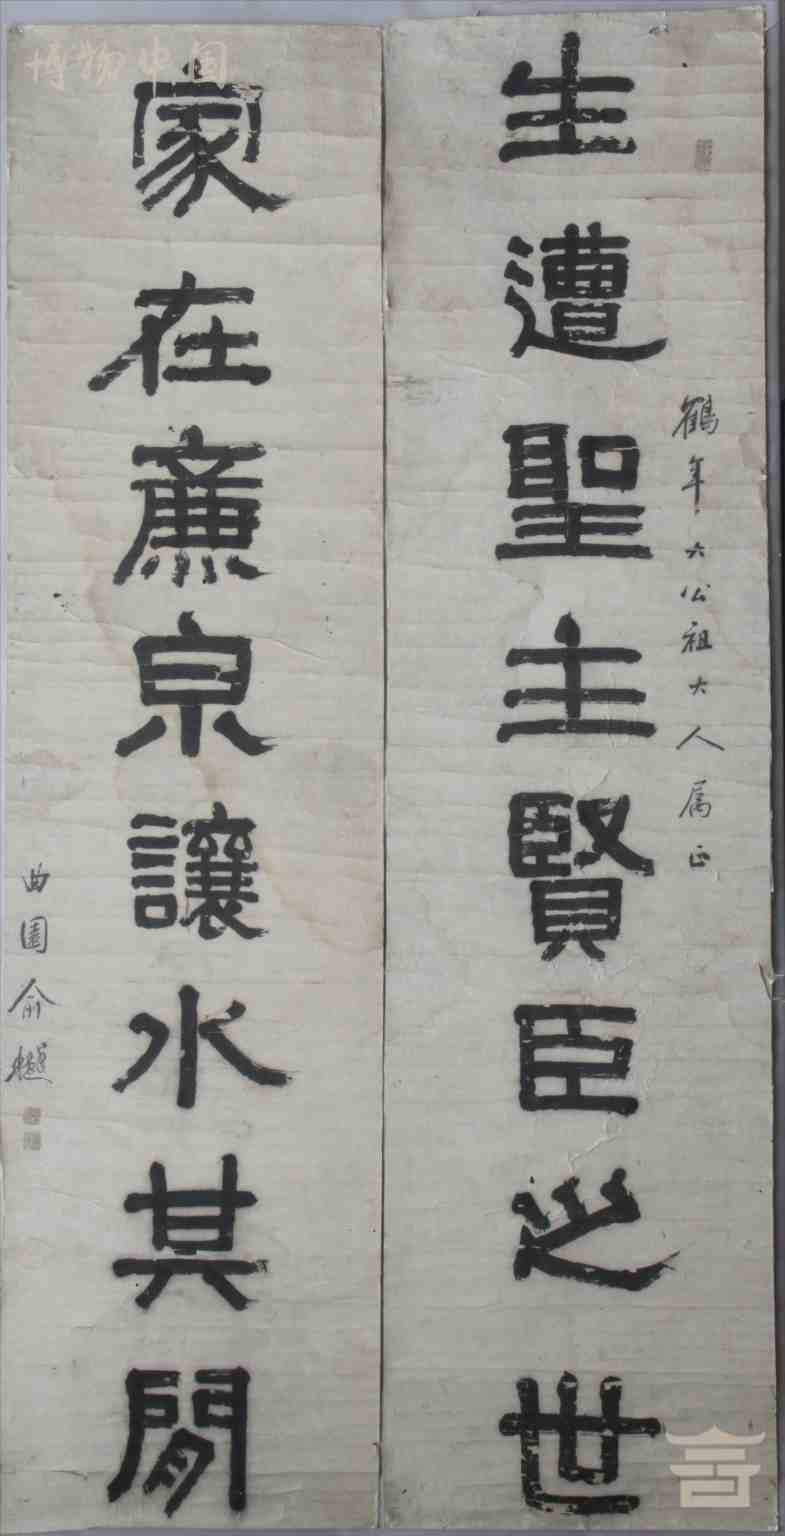 生遭聖主賢臣之世
鶴年六公祖大人属正
家在廉泉讓水其閒
曲園俞樾
博物中国